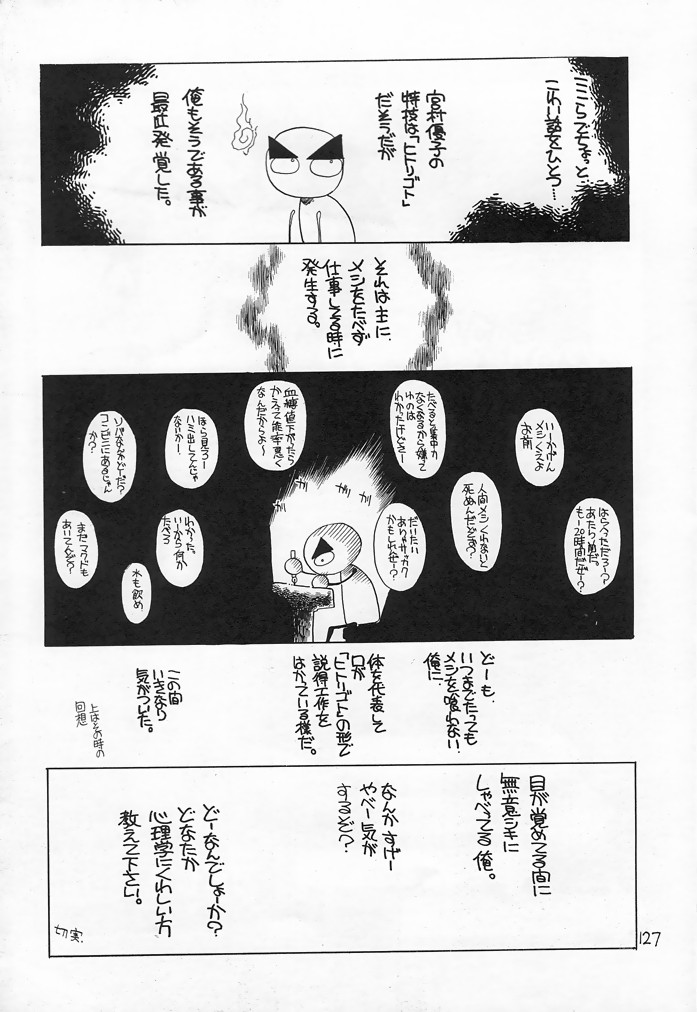 ここらでちょっと…
こわい話をひとつ…
宮村優子の
特技は、「ヒトリゴト」
だそうだが
俺もそうである事が
最近発覚した。
それは主に、
メシをたべず
仕事してる時に
発生する。
いーかげん
メシくえよ
お前
はらへっただろー?
あたりめだ。
もー20時間だぜー?
人間メシくわないと
死ぬんだとさ?
たべると集中力
なくなるから嫌て
わのは
わかったけどさー
だいたい
ありゃサッカク
かもしれねー?
血糖値下がったら
かえって能率悪く
なんだからよ〜
ほら見ろー
ハミ出してんじゃ
ないかー、
ソバなんかどーだ?
コンビニにあるじゃん
か?
わかった。
いーから何か
たべろ
水も飲め
まだマクドも
あいてんぞ?
ガリ
ガリ
ガリ
どーも、
いつまでたっても
メシを喰わない
俺に、
体を代表して
口が
「ヒトリゴト」の形で
説得工作を
はかっている様だ。
この間
いきなり
気がついた。
上はその時の
回想
目が覚めてる間に
無意シキに
しゃべってる俺。
なんかすげー
やべー気が
するぞ?
どーなんでしょーか?
どなたか
心理学にくわしい方
教えて下さい。
切実.
127